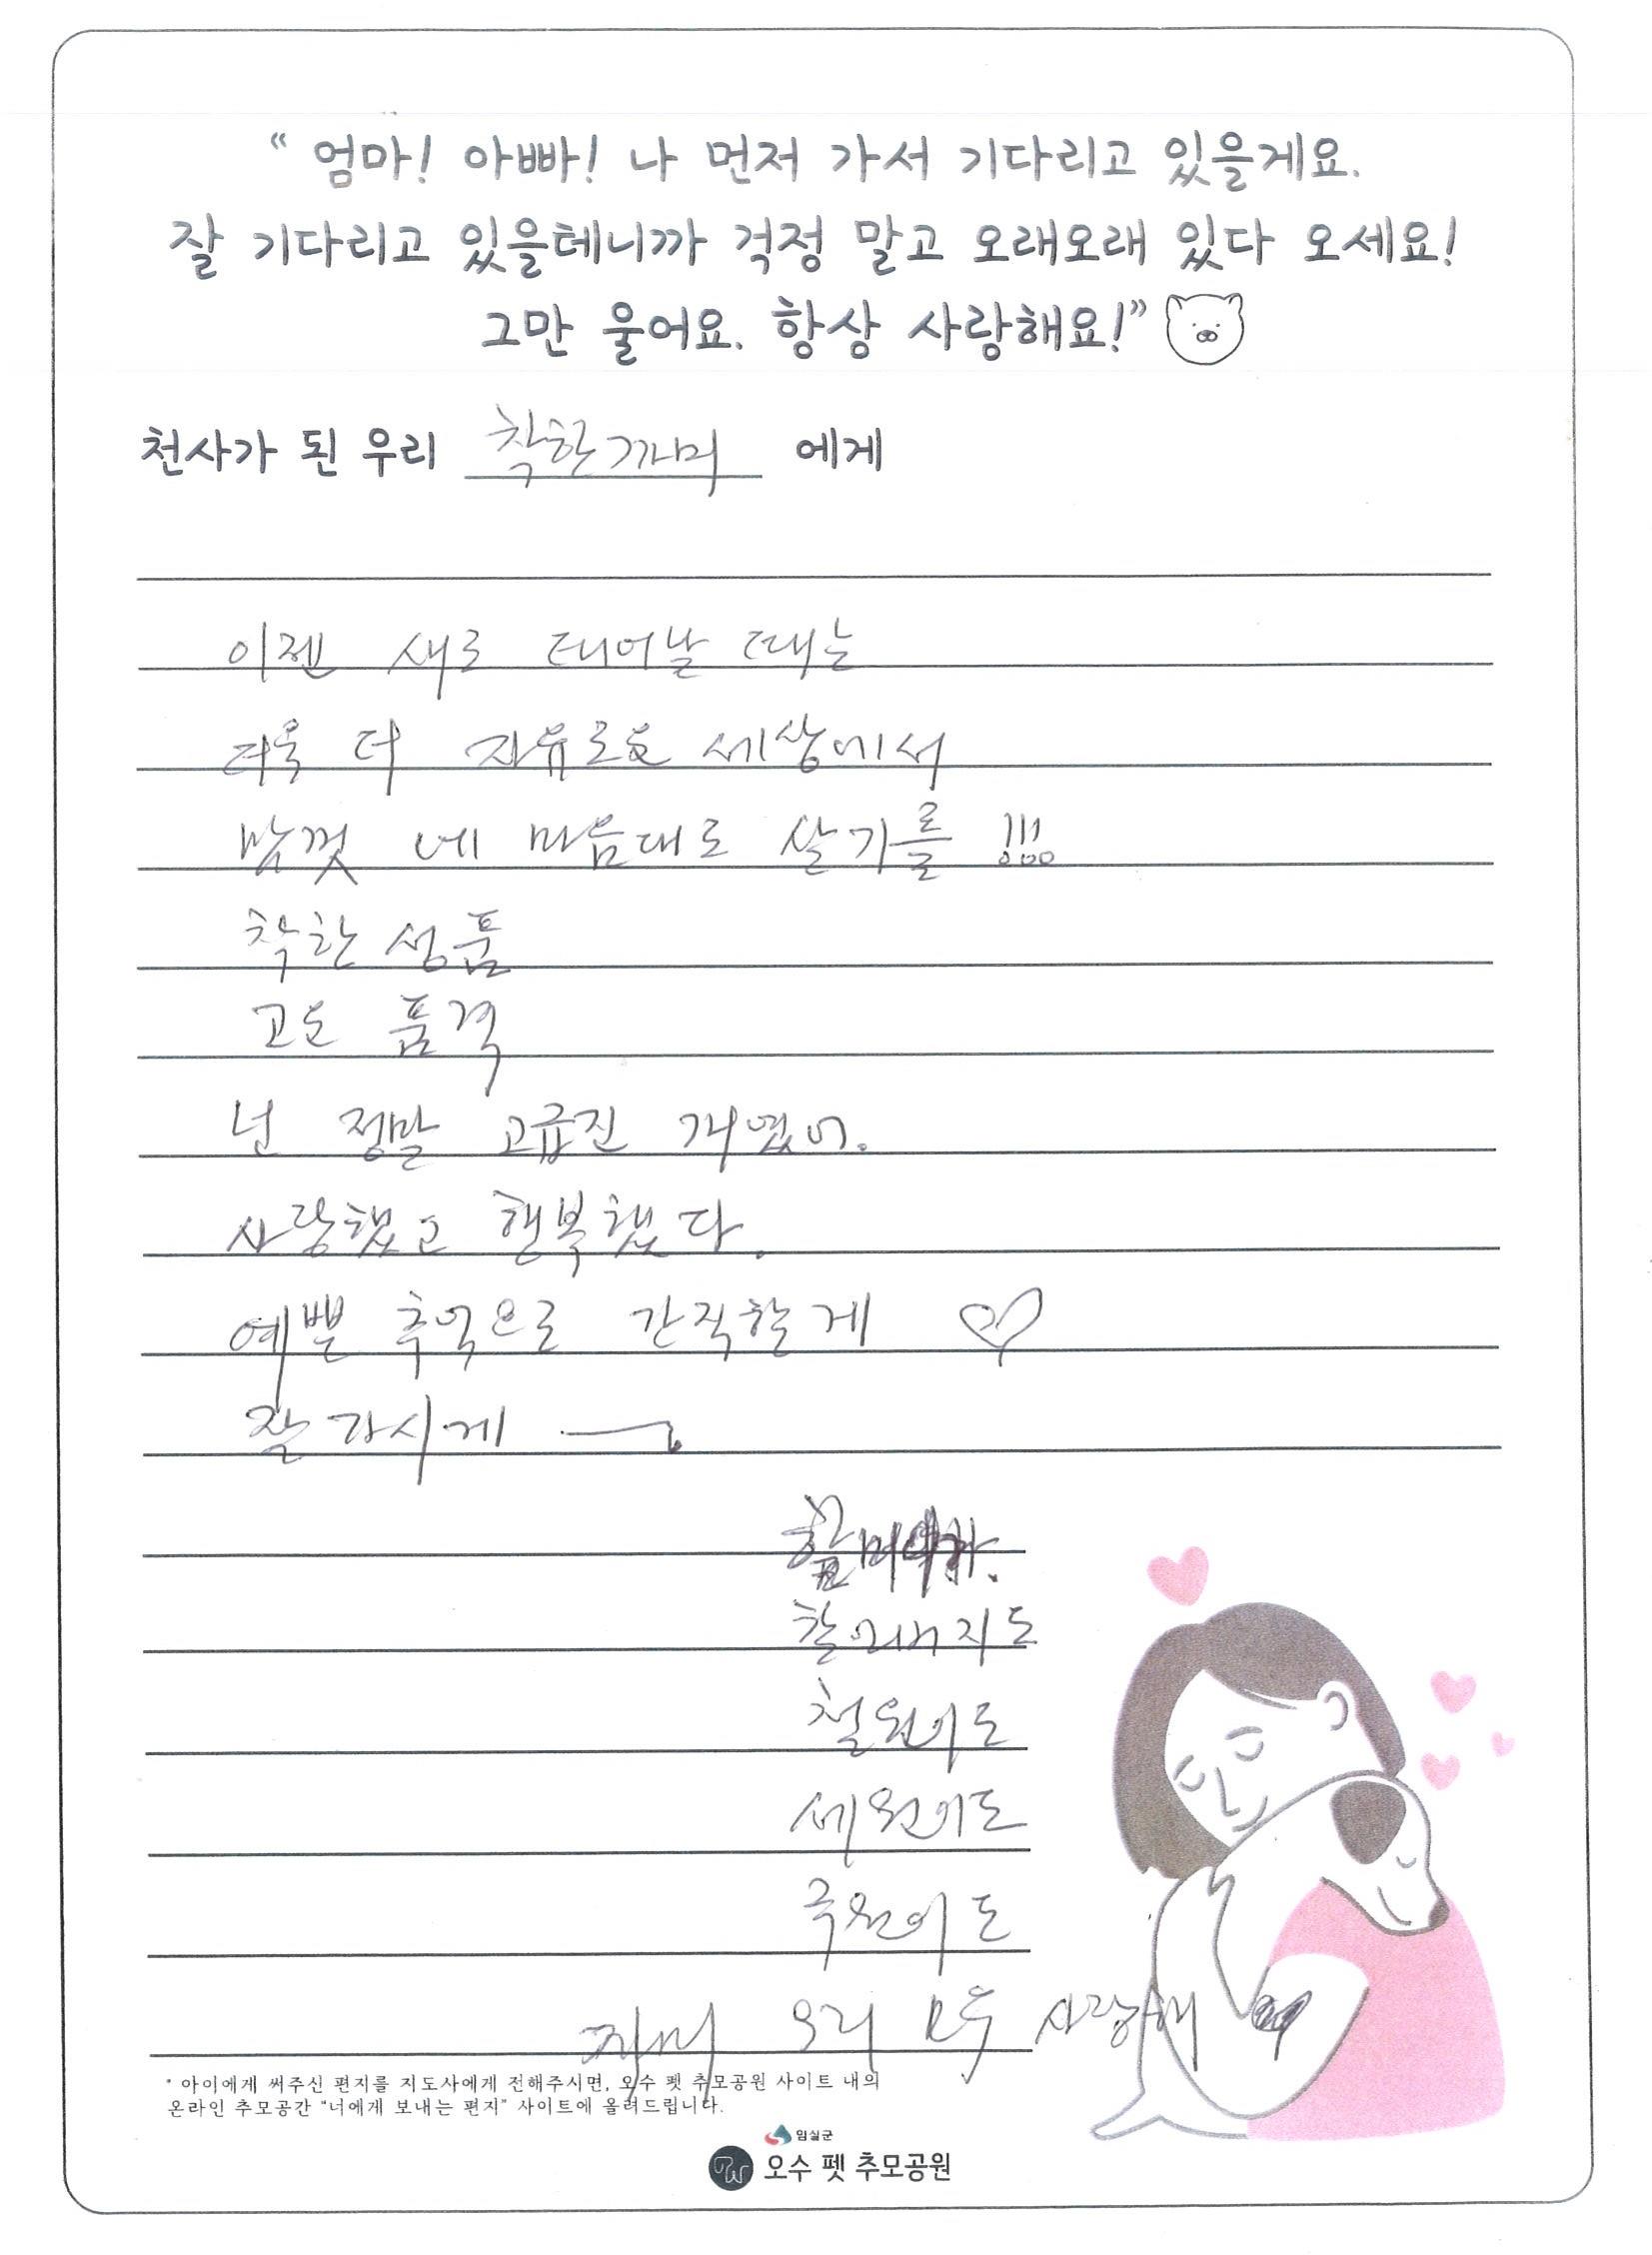 “ 엄마! 아빠! 나 먼저 가서 기다리고 있을게요.
잘 기다리고 있을테니까 걱정 말고 오래오래 있다 오세요!
그만 울어요. 항상 사랑해요!”
천사가 된 우리 착한까미 에게
이젠 새로 태어날 때는
더욱 더 자유로운 세상에서
맘껏 네 마음대로 살기를 !!!
착한 성품
고운 품격
넌 정말 고급진 개였어.
사랑했고 행복했다.
예쁜 추억으로 간직할게 ♡
잘 가시게
할매지도
철원이도
세원이도
국원이도
우리 모두 사랑해
* 아이에게 써주신 편지를 지도사에게 전해주시면, 오수 펫 추모공원 사이트 내의
온라인 추모공간 “너에게 보내는 편지” 사이트에 올려드립니다.
임실군
오수 펫 추모공원